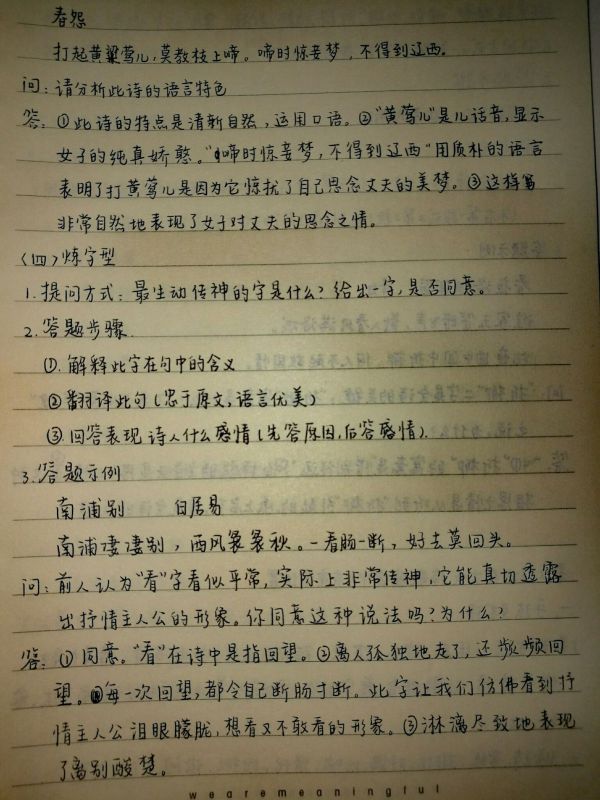 春怨
打起黄粱莺儿,莫教枝上啼。啼时惊妾梦,不得到辽西。
问:请分析此诗的语言特色
答:①此诗的特点是清新自然,运用口语。②"黄莺儿"是儿话音,显示
女子的纯真娇憨。"啼时惊妾梦,不得到辽西"用质朴的语言
表明了打黄莺儿是因为它惊扰了自己思念丈夫的美梦。③这样写
非常自然地表现了女子对丈夫的思念之情。
(四)炼字型
1.提问方式:最生动传神的字是什么?给出一字,是否同意。
2.答题步骤.
①.解释此字在句中的含义
②翻译此句(忠于原文,语言优美)
③.回答表现诗人什么感情(先答原因,后答感情).
3.答题示例
南浦别 白居易
南浦凄凄别,西风袅袅秋。一看肠一断,好去莫回头。
问:前人认为"看"字看似平常,实际上非常传神,它能真切透露
出抒情主人公的形象。你同意这种说法吗?为什么?
答:①同意。"看"在诗中是指回望。②离人孤独地走了,还频频回
望。每一次回望,都令自己断肠寸断。此字让我们仿佛看到抒
情主人公泪眼朦胧,想看又不敢看的形象。③淋漓尽致地表现
了离别酸楚。
wearemeaningful